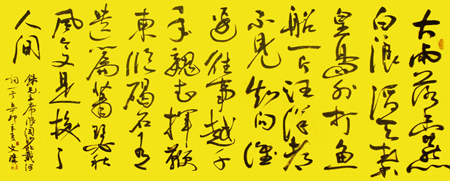 大雨落幽燕
白浪滔天秦
皇岛外打鱼
船一片汪洋都
不见知向谁
边往事越千
年魏武挥鞭
东临碣石有
遗篇萧瑟秋
风今又是换了
人间
录毛主席浪淘沙北戴河
词一首癸卯年